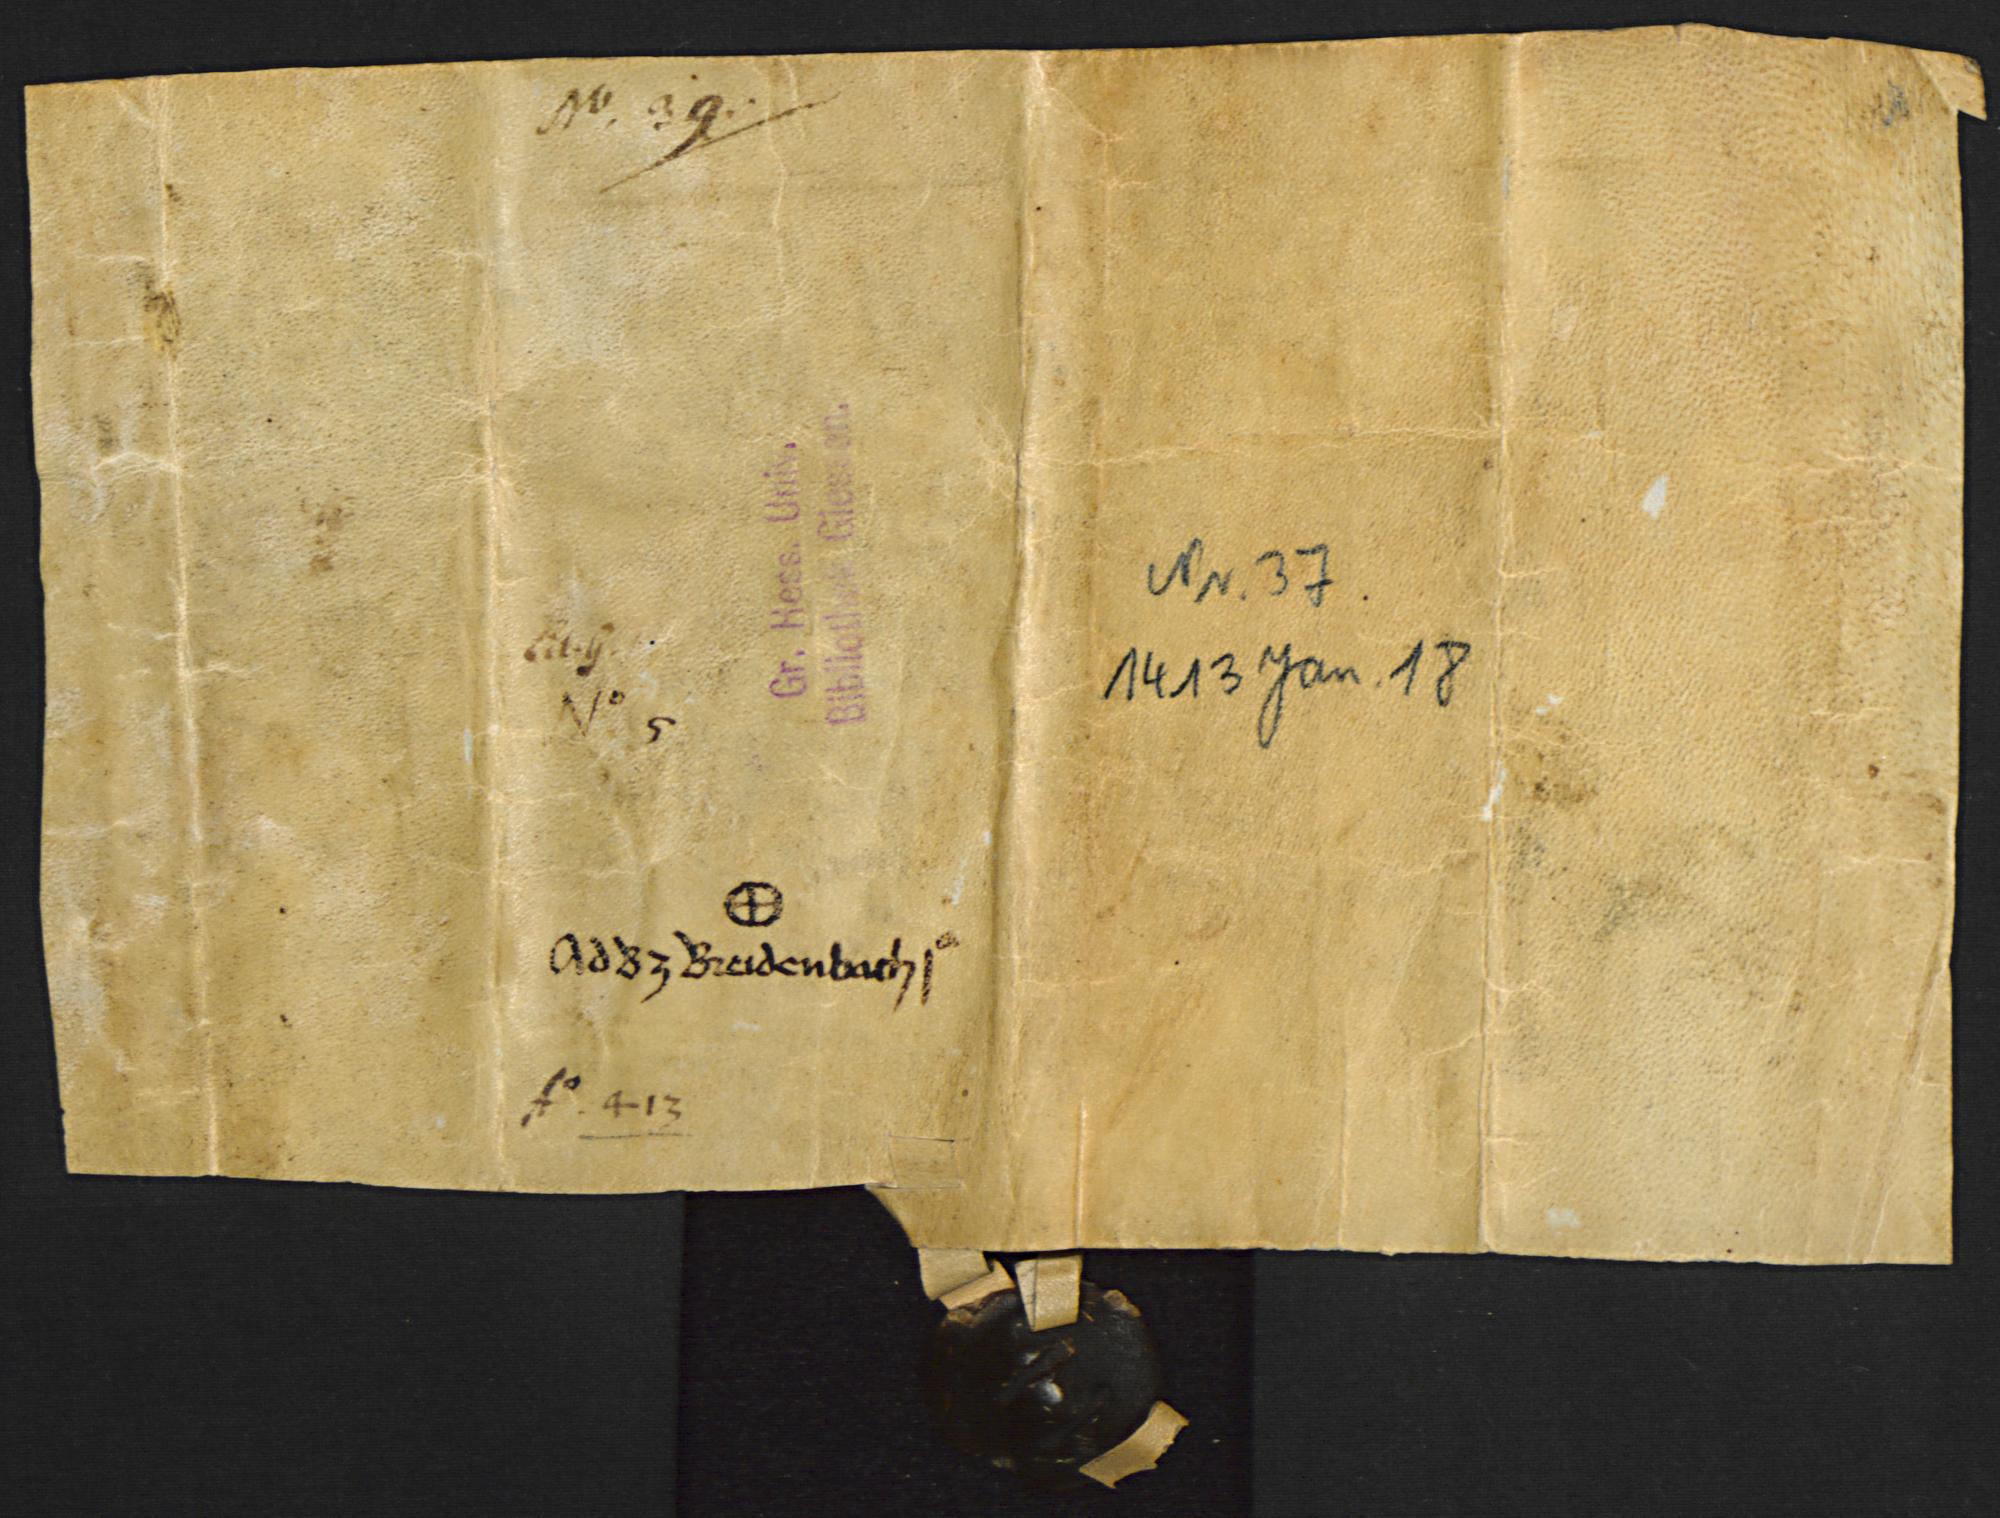 No. 39.
Gr. Hess. Univ.
Bibliothek Giessen.
Nr. 37.
1413 Jan. 18
No 5
Breidenbach
fo. 413